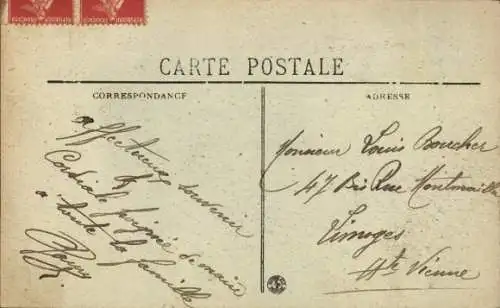 CARTE POSTALE
CORRESPONDANCE
ADRESSE
affectueux souvenir
et
Cordiale poignée de main
a toute la famille
Monsieur Louis Boucher
47 Bis Rue Montmailler
Limoges
Hte Vienne